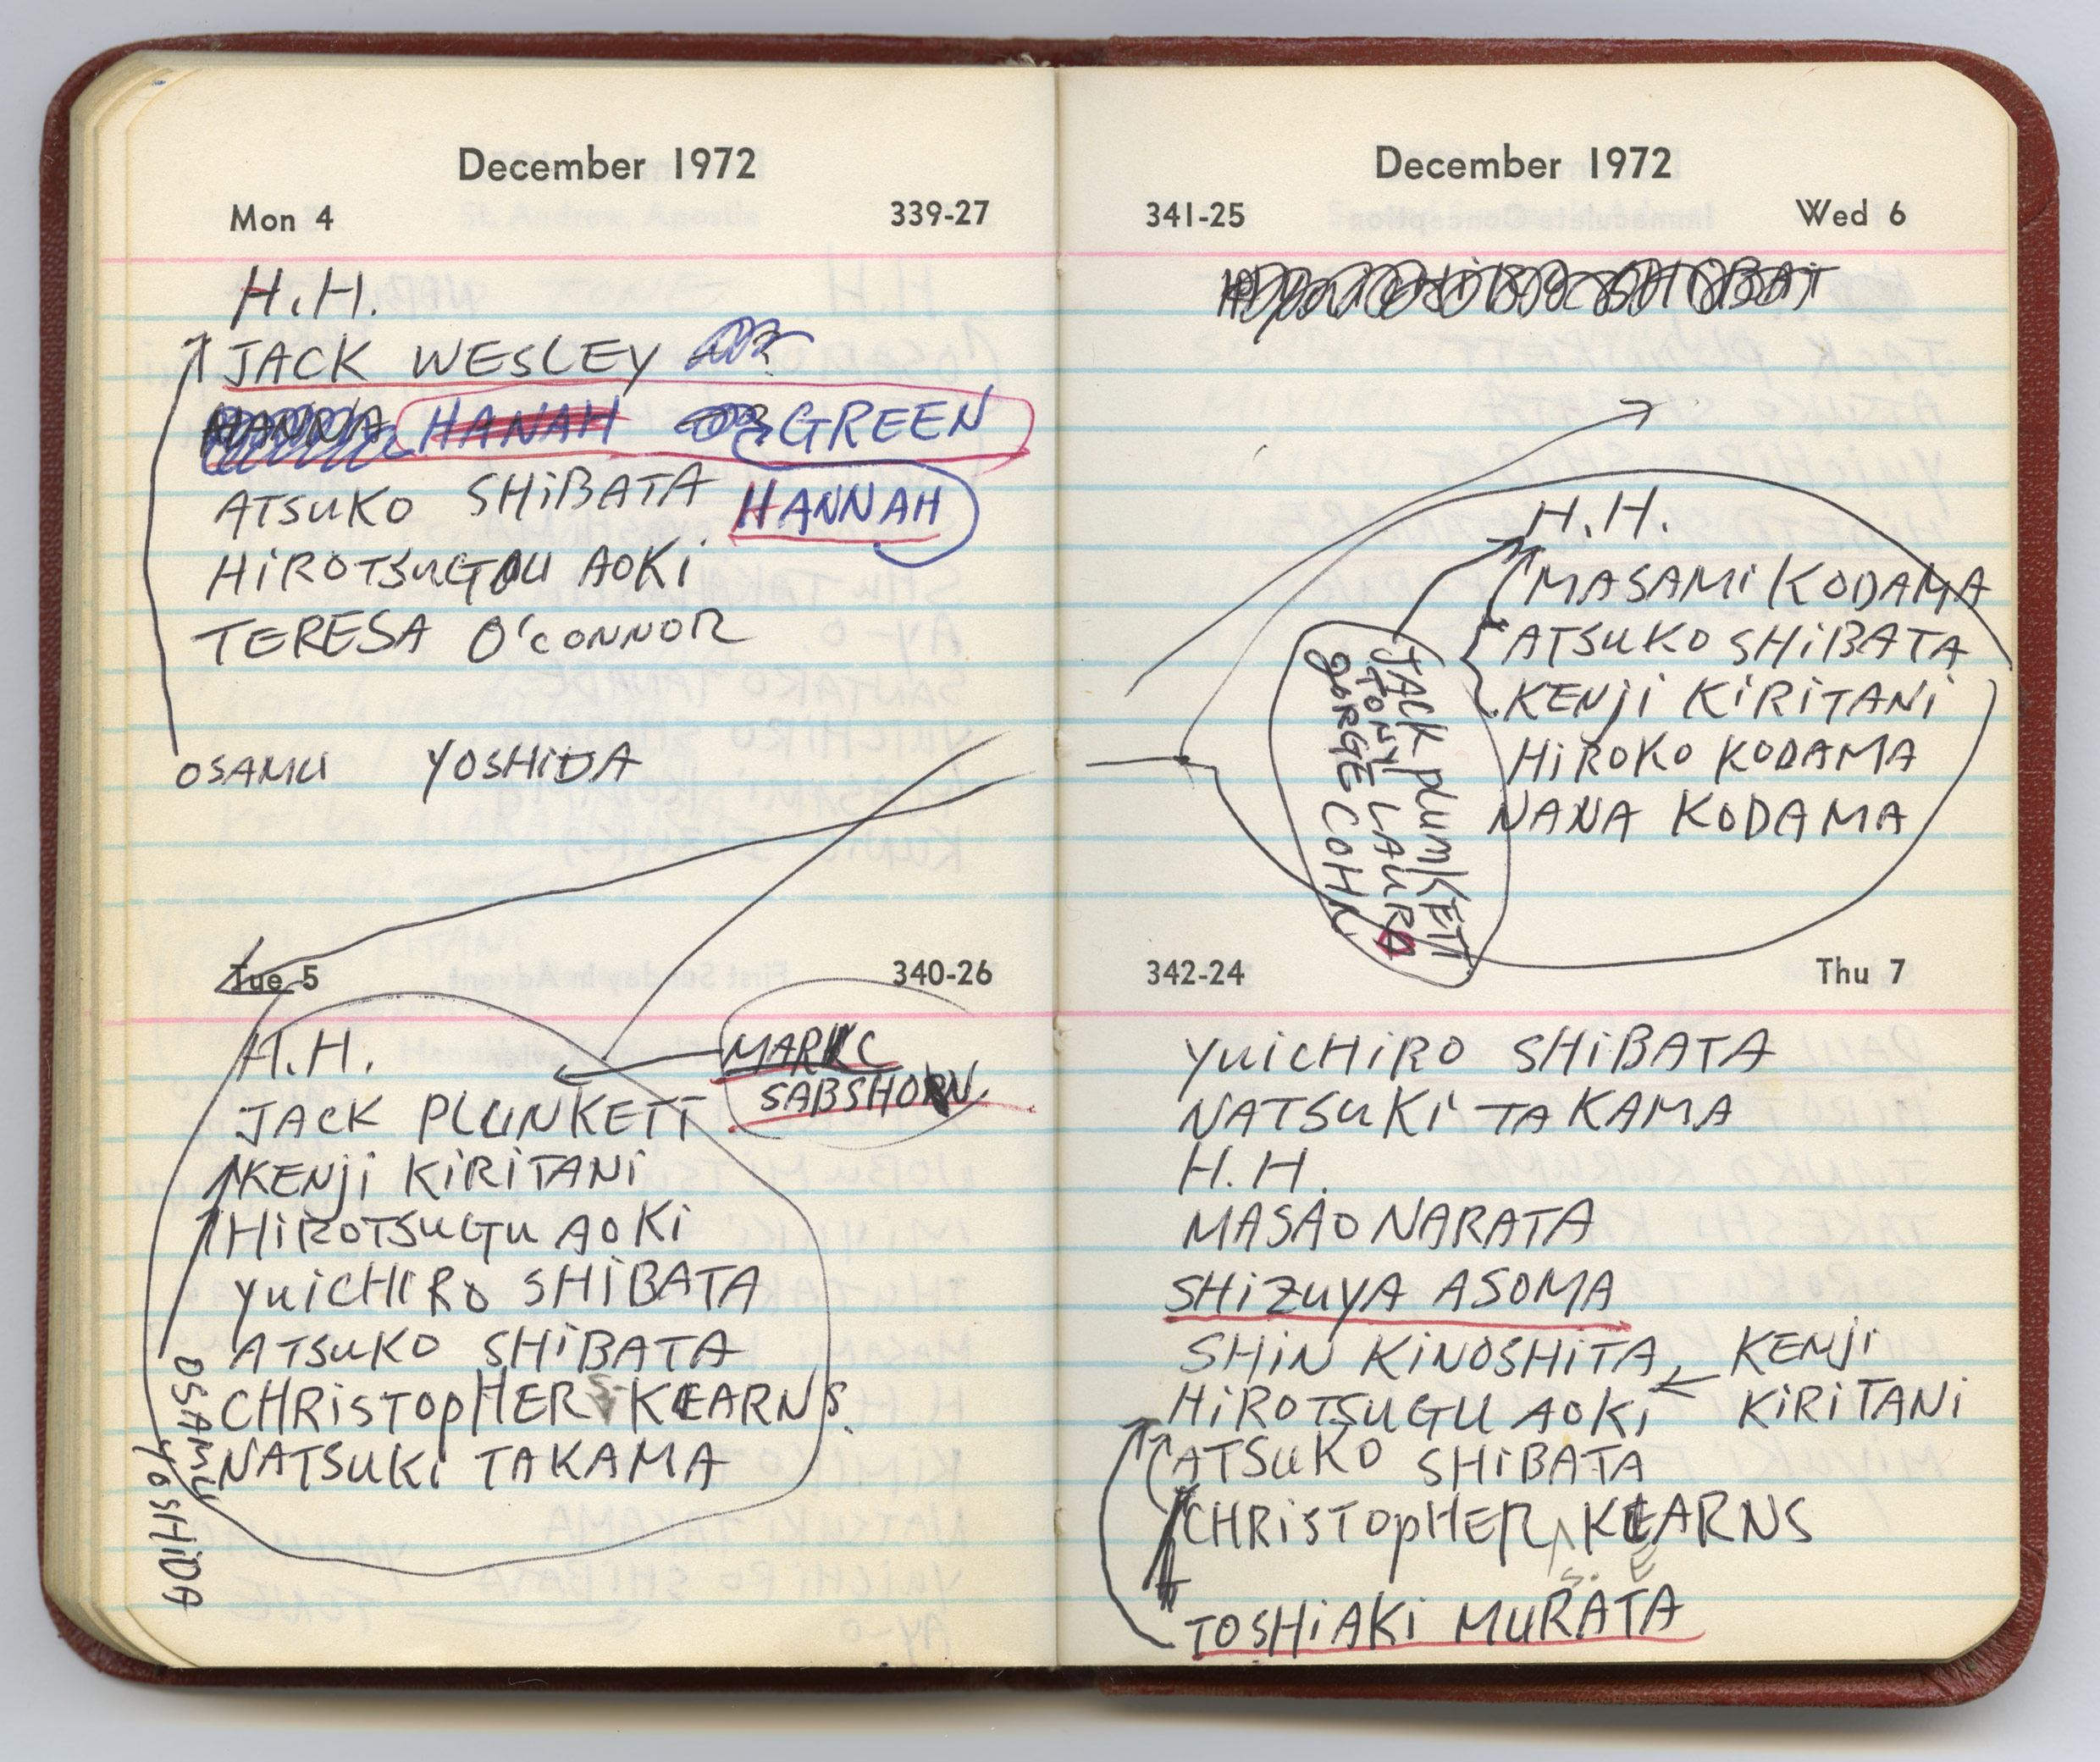 December 1972
Mon 4 339-27
H.H.
JACK WESLEY
HANNA HANAH GREEN
ATSUKO SHiBATA HANNAH
HiROTSUGU AOKi
TERESA O'CONNOR
OSAMU YOSHiDA
Tue 5 340-26
H.H.
MARC
SABSHON
JACK PLUNKETT
KENji KiRiTANi
HiROTSUGU AOKi
YUiCHiRO SHiBATA
ATSUKO SHiBATA
CHRiSTOpHER S. KEARNS.
NATSUKi TAKAMA
OSAMU YOSHiDA
December 1972
341-25 Wed 6
H.H.
MASAMi KODAMA
ATSUKO SHiBATA
KENji KiRiTANi
HiROKO KODAMA
NANA KODAMA
JACK plUNKETT
TONY LAURO
gORGE COHN
342-24 Thu 7
YUiCHiRO SHiBATA
NATSUKi TAKAMA
H.H.
MASAO NARATA
SHiZUYA ASOMA
SHiN KiNOSHiTA KENji
HiROTSUGU AOKi KiRiTANi
ATSUKO SHiBATA
CHRiSTOpHER KEARNS
S. E
TOSHiAKi MURATA